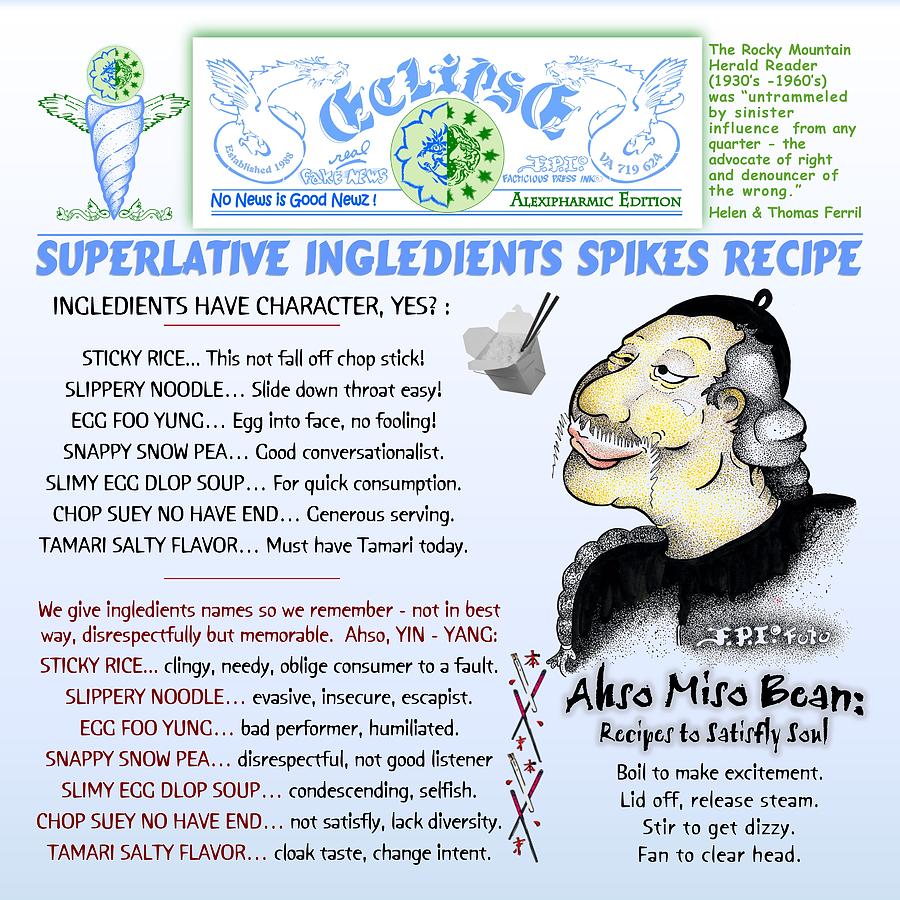 Eclipse
Established 1988
real
FAKE NEWS
F.P.I.
FACTICIOUS PRESS INK
VA 719 624
No News is Good Newz !
ALEXIPHARMIC EDITION
The Rocky Mountain
Herald Reader
(1930's -1960's)
was “untrammeled
by sinister
influence from any
quarter - the
advocate of right
and denouncer of
the wrong.”
Helen & Thomas Ferril
SUPERLATIVE INGLEDIENTS SPIKES RECIPE
INGLEDIENTS HAVE CHARACTER, YES? :
STICKY RICE... This not fall off chop stick!
SLIPPERY NOODLE... Slide down throat easy!
EGG FOO YUNG... Egg into face, no fooling!
SNAPPY SNOW PEA... Good conversationalist.
SLIMY EGG DLOP SOUP... For quick consumption.
CHOP SUEY NO HAVE END... Generous serving.
TAMARI SALTY FLAVOR... Must have Tamari today.
We give ingledients names so we remember - not in best
way, disrespectfully but memorable. Ahso, YIN - YANG:
STICKY RICE... clingy, needy, oblige consumer to a fault.
SLIPPERY NOODLE... evasive, insecure, escapist.
EGG FOO YUNG... bad performer, humiliated.
SNAPPY SNOW PEA... disrespectful, not good listener
SLIMY EGG DLOP SOUP... condescending, selfish.
CHOP SUEY NO HAVE END... not satisfly, lack diversity.
TAMARI SALTY FLAVOR... cloak taste, change intent.
F.P.I. Foto
Ahso Miso Bean:
Recipes to Satisfly Soul
Boil to make excitement.
Lid off, release steam.
Stir to get dizzy.
Fan to clear head.